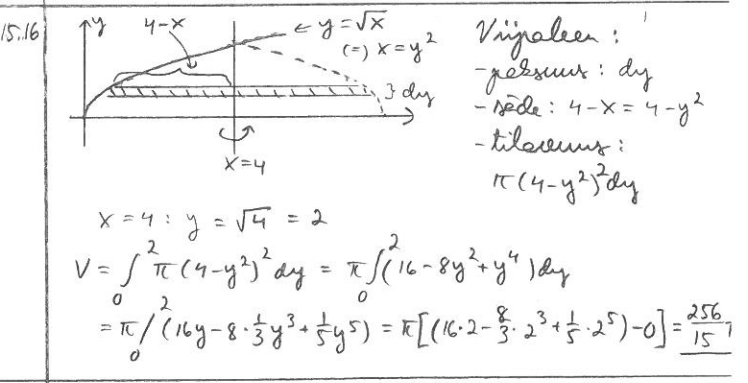 15.16
y
4-x
← y = √x
(=) x = y²
} dy
x=4
Viipaleen :
- paksuus : dy
- säde : 4-x = 4-y²
- tilavuus :
π(4-y²)²dy
x = 4 : y = √4 = 2
V = ∫₀² π(4-y²)² dy = π∫₀²(16-8y²+y⁴)dy
= π/₀²(16y-8·⅓y³+⅕y⁵) = π[(16·2-8/3·2³+⅕·2⁵)-0] = 256/15